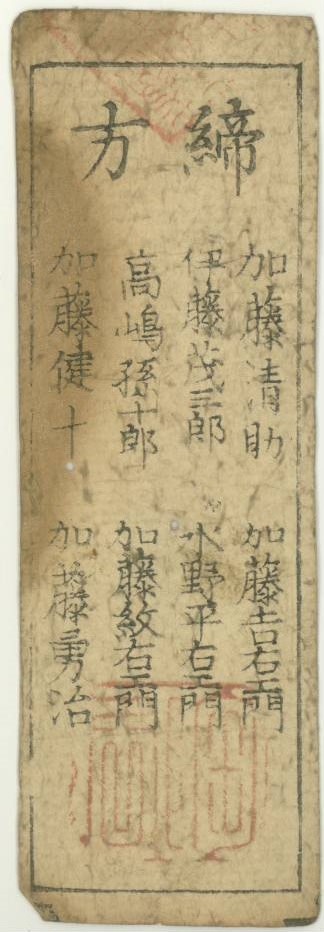 締方
加藤清助
伊藤茂三郎
高嶋孫十郎
加藤健十
加藤吉右衛門
水野平右衛門
加藤紋右衛門
加藤勇治